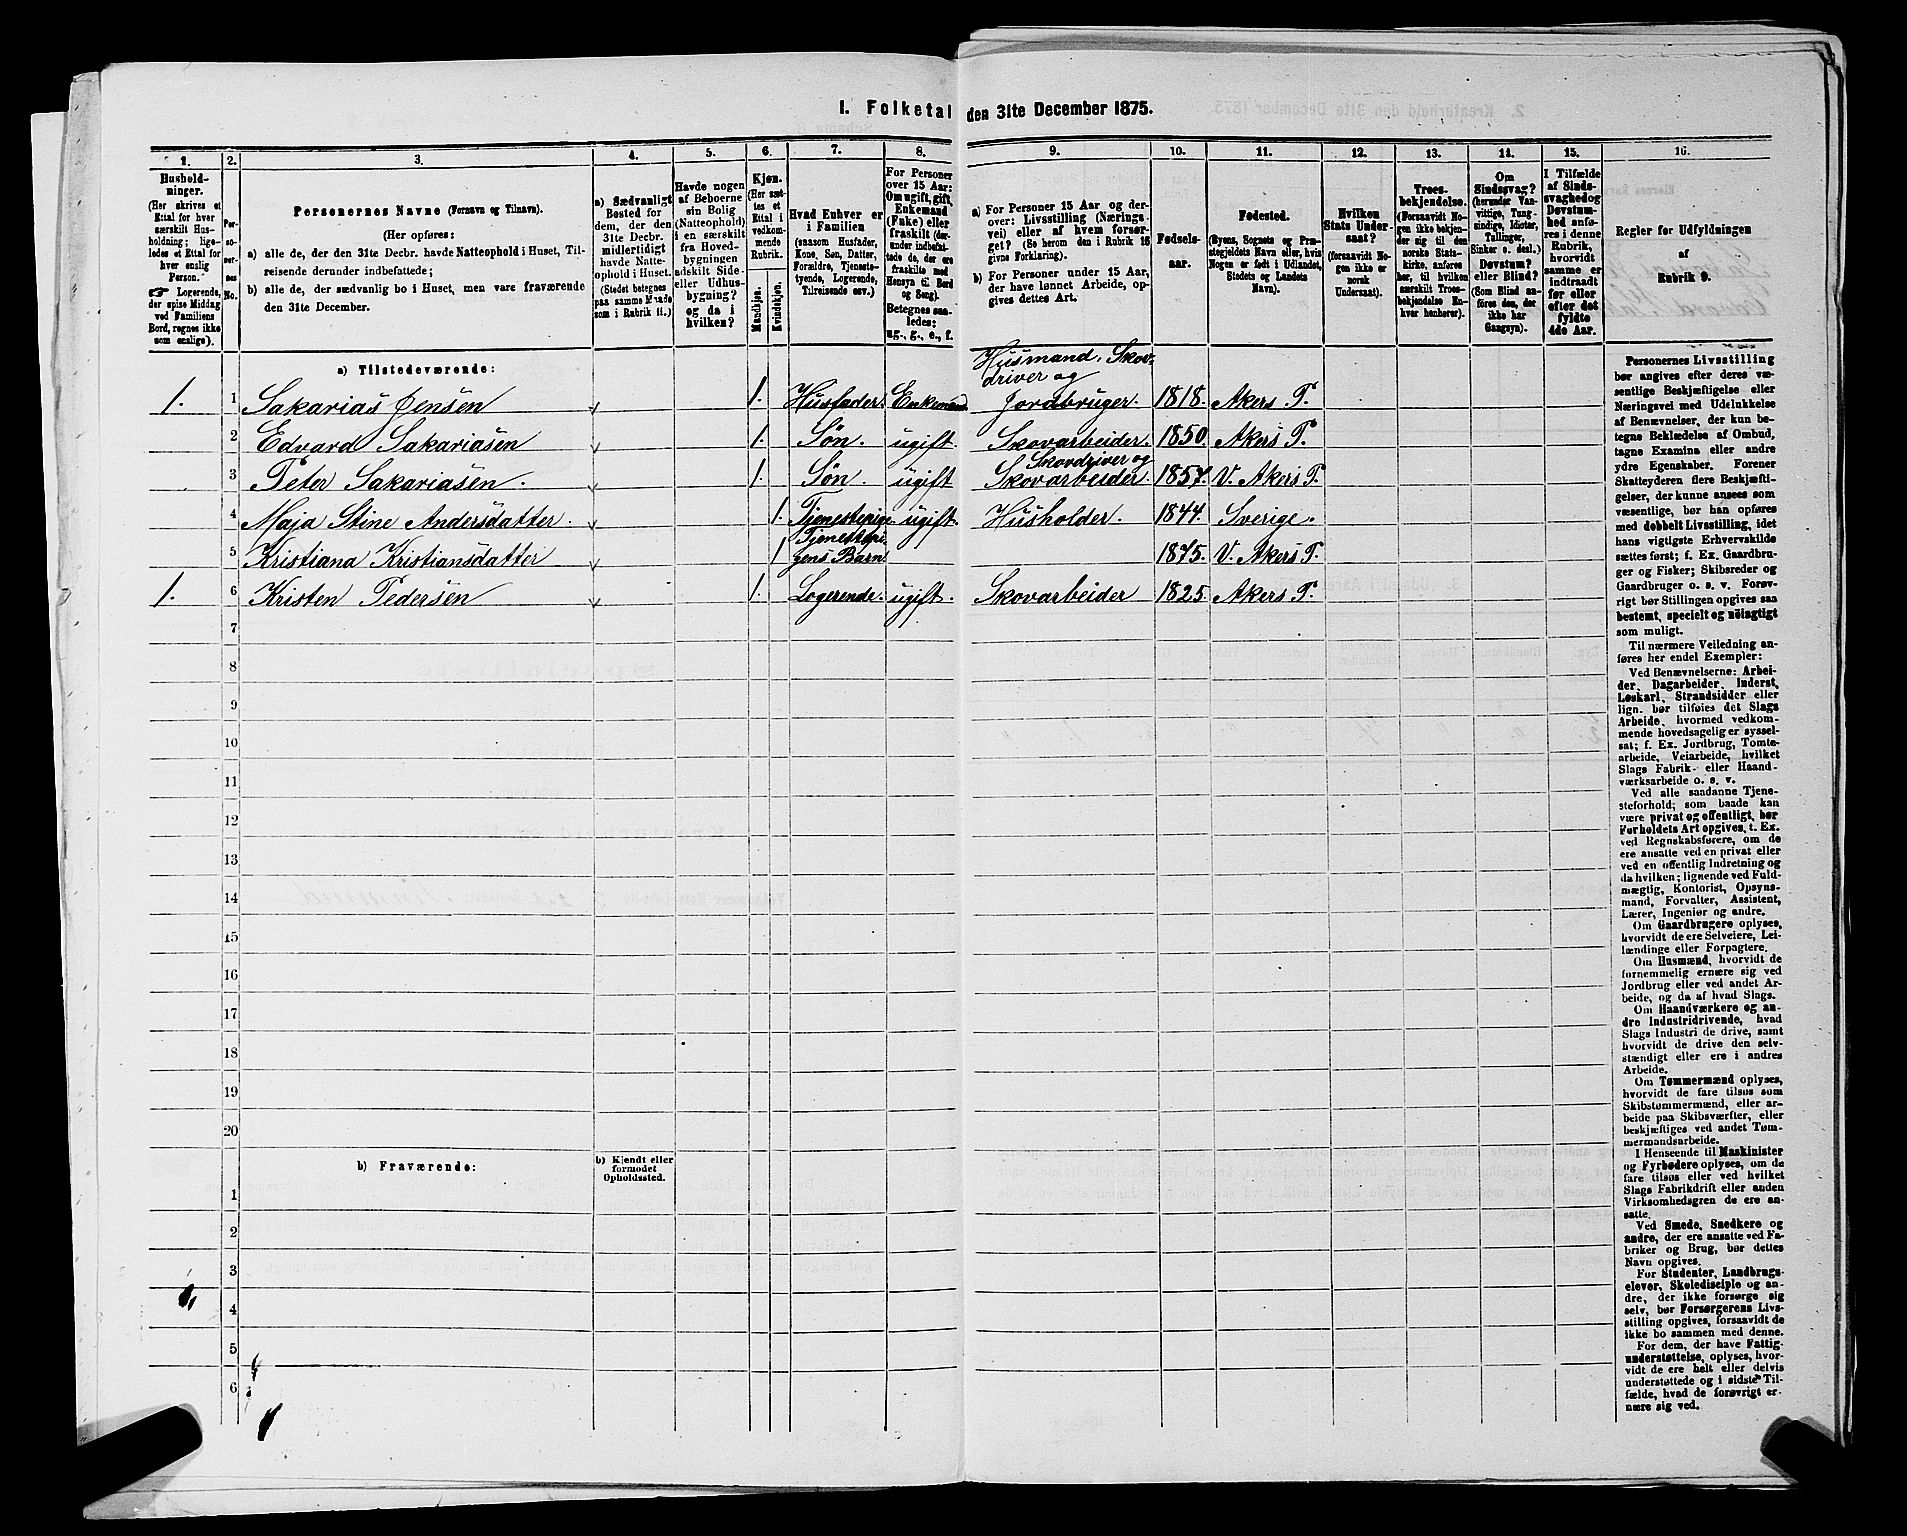 I. Folketal den 31te December 1875.
1. 2. 3. 4. 5. 6. 7. 8. 9. 10. 11. 12. 13. 14. 15. 16.
Husholdninger.
(Her skrives et
Ettal for hver
særskilt Husholdning;
ligeledes et Ettal for
hver enslig
Person.
☞ Logerende,
der spise Middag
ved Familiens
Bord, regnes ikke
som enslige).
Personernes No.
Personernes Navne (Fornavn og Tilnavn).
(Her opføres:
a) alle de, der den 31te Decbr. havde Natteophold i Huset, Tilreisende
derunder indbefattede;
b) alle de, der sædvanlig bo i Huset, men vare fraværende
den 31te December.
a) Sædvanligt
Bosted for
dem, der den
31te Decbr.
midlertidigt
havde Natteophold
i Huset.
(Stedet betegnes
paa samme Maade
som i Rubrik 11.)
Havde nogen
af Beboerne
sin Bolig
(Natteophold)
i en særskilt
fra Hovedbygningen
adskilt Side-
eller Udhusbygning?
og da i
hvilken?
Kjøn.
(Her sættes
et Ettal i
vedkommende
Rubrik.
Mandkjøn.
Kvindekjøn.
Hvad Enhver er
i Familien
(saasom Husfader,
Kone, Søn, Datter,
Forældre, Tjenestetyende,
Logerende,
Tilreisende osv.)
For Personer
over 15 Aar:
Om ugift, gift,
Enkemand
(Enke) eller
fraskilt (derunder
indbefattede
de, der ere
fraskilte med
Hensyn til Bord
og Seng).
Betegnes saaledes:
ug., g., e., f.
a) For Personer 15 Aar og derover:
Livsstilling (Næringsvei)
eller af hvem forsørget?
(Se herom den i Rubrik 16
givne Forklaring).
b) For Personer under 15 Aar,
der have lønnet Arbeide, opgives
dettes Art.
Fødselsaar.
Fødested.
(Byens, Sognets og Præstegjeldets
Navn eller, hvis
Nogen er født i Udlandet,
Stedets og Landets
Navn).
Hvilken
Stats Undersaat?
(forsaavidt Nogen
ikke er
norsk
Undersaat).
Troesbekjendelse.
(Forsaavidt Nogen
ikke bekjender
sig til den
norske Statskirke,
anføres
her, til hvilken
særskilt Troesbekjendelse
Enhver
henhører).
Om
Sindssvag?
(herunder Vanvittige,
Tungsindige,
Idioter,
Tullinger,
Sinker o. desl.)
Døvstum?
eller Blind?
(Som Blind anføres
den, der
ikke har
Gangsyn).
I Tilfælde
af Sindssvaghed
og
Døvstumhed
anføres
i denne
Rubrik,
hvorvidt
samme er
indtraadt
før eller
efter det
fyldte
4de Aar.
Regler for Udfyldningen
af
Rubrik 9.
a) Tilstedeværende:
Husmand, Skovdriver
og
1. 1 Sakarias Jensen 1. Husfader. Enkemand. Jordbruger. 1818. Akers P.
2 Edvard Sakariasen 1. Søn. ugift. Skovarbeider. 1850. Akers P.
Skovdriver og
3 Peter Sakariasen. 1. Søn. ugift Skovarbeider. 1857. V. Akers P.
4 Maja Stine Andersdatter. 1. Tjenestepige. ugift. Husholder. 1844. Sverige.
5 Kristiana Kristiansdatter 1 Tjenestepigens Barn. 1875. V. Akers P.
1. 6 Kristen Pedersen 1. Logerende. ugift. Skovarbeider 1825. Akers P.
7
8
9
10
11
12
13
14
15
16
17
18
19
20
b) Fraværende:
b) Kjendt eller
formodet
Opholdssted.
1
2
3
4
5
6
Personernes Livsstilling
bør angives efter deres væsentlige
Beskjæftigelse eller
Næringsvei med Udelukkelse
af Benævnelser, der kun betegne
Beklædelse af Ombud,
tagne Examina eller andre
ydre Egenskaber. Forener
Skatteyderen flere Beskjæftigelser,
der kunne ansees som
væsentlige, bør han opføres
med dobbelt Livsstilling, idet
hans vigtigste Erhvervskilde
sættes først; f. Ex. Gaardbruger
og Fisker; Skibsreder og
Gaardbruger o. s. v. Forøvrigt
bør Stillingen opgives saa
bestemt, specielt og nøiagtigt
som muligt.
Til nærmere Veiledning anføres
her endel Exempler:
Ved Benævnelserne: Arbeider,
Dagarbeider, Inderst,
Løskarl, Strandsidder eller
lign. bør tilføies det Slags
Arbeide, hvormed vedkommende
hovedsagelig er sysselsat;
f. Ex. Jordbrug, Tomtearbeide,
Veiarbeide, hvilket
Slags Fabrik- eller Haandværksarbeide
o. s. v.
Ved alle saadanne Tjenesteforhold;
som baade kan
være privat og offentligt, bør
Forholdets Art opgives, t. Ex.
ved Regnskabsførere, om de
ere ansatte ved en privat eller
ved en offentlig Indretning og
da hvilken; lignende ved Fuldmægtig,
Kontorist, Opsynsmand,
Forvalter, Assistent,
Lærer, Ingeniør og andre.
Om Gaardbrugere oplyses,
hvorvidt de ere Selveiere, Leilændinge
eller Forpagtere.
Om Husmænd, hvorvidt de
fornemmelig ernære sig ved
Jordbrug eller ved andet Arbeide,
og da af hvad Slags.
Om Haandværkere og andre
Industridrivende, hvad
Slags Industri de drive, samt
hvorvidt de drive den selvstændigt
eller ere i andres
Arbeide.
Om Tømmermænd oplyses,
hvorvidt de fare tilsøs som
Skibstømmermænd, eller arbeide
paa Skibsværfter, eller
beskjæftiges ved andet Tømmermandsarbeide.
I Henseende til Maskinister
og Fyrbødere oplyses, om de
fare tilsøs eller ved hvilket
Slags Fabrikdrift eller anden
Virksomhedsgren de ere ansatte.
Ved Smede, Snedkere og
andre, der ere ansatte ved Fabriker
og Brug, bør dettes
Navn opgives.
For Studenter, Landbrugselever,
Skoledisciple og andre,
der ikke forsørge sig
selv, bør Forsørgerens Livsstilling
opgives, forsaavidt de
ikke bo sammen med denne.
For dem, der have Fattigunderstøttelse,
oplyses, hvorvidt
de ere helt eller delvis
understøttede og i sidste Tilfælde,
hvad de forøvrigt ernære
sig ved.